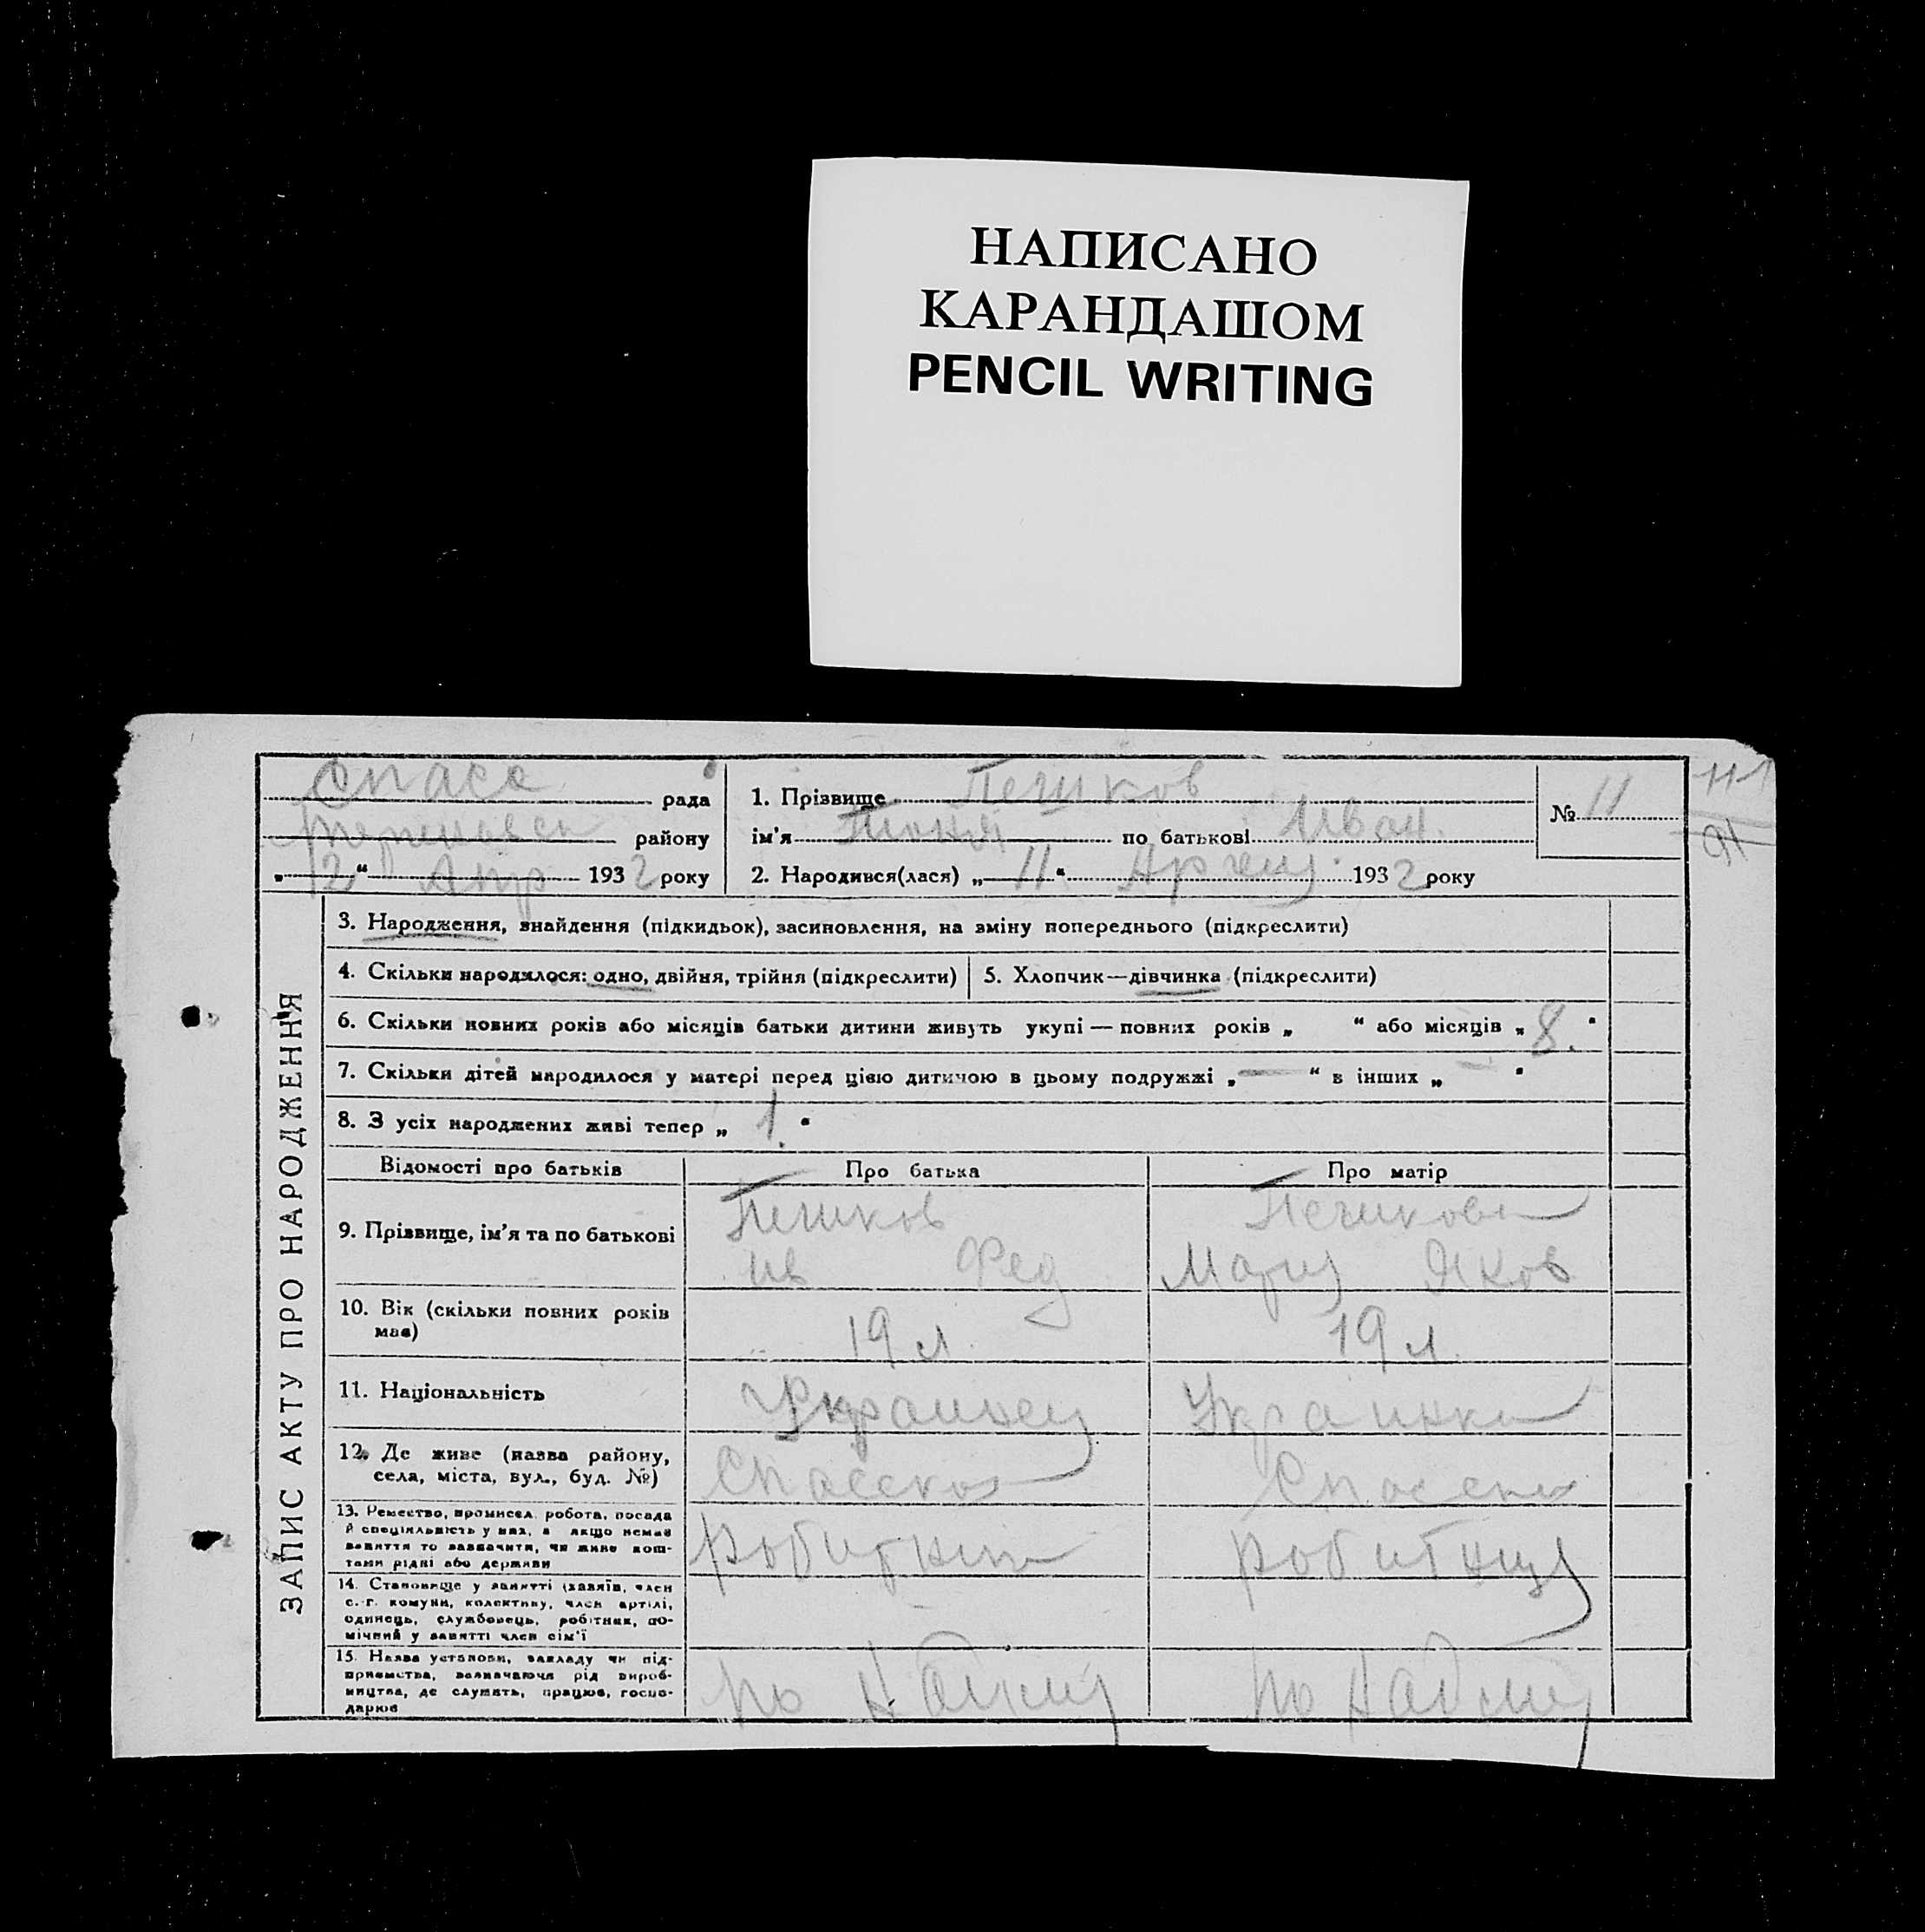 НАПИСАНО
КАРАНДАШОМ
PENCIL WRITING
Спасс рада
району
„12“ Апр 1932 року
1. Прізвище Пешков
ім'я Тоня по батькові Иван.
2. Народився(лася) „11“ 1932 року
№ 11
ЗАПИС АКТУ ПРО НАРОДЖЕННЯ
3. Народження, знайдення (підкидьок), засиновлення, на зміну попереднього (підкреслити)
4. Скільки народилося: одно, двійня, трійня (підкреслити)
5. Хлопчик—дівчинка (підкреслити)
6. Скільки повних років або місяців батьки дитини живуть укупі — повних років „ “ або місяців „8.“
7. Скільки дітей народилося у матері перед цією дитиною в цьому подружжі „—“ в інших „—“
8. З усіх народжених живі тепер „1.“
Відомості про батьків Про батька Про матір
9. Прізвище, ім'я та по батькові
Пешков Пешкова
Ив Фед Мария Яков
10. Вік (скільки повних років має) 19 л. 19 л.
11. Національність Украинец Украинка
12. Де живе (назва району,
села, міста, вул., буд. №)
13. Ремество, промисел, робота, посада
й спеціяльність у них, а якщо немає
заняття то зазначити, чи живе кош-
тами рідні або держави
робитник робитниця
14. Становище у занятті (хазяїн, член
с.-г. комуни, колективу, член артілі,
одинець, службовець, робітник, по-
мічний у занятті член сім'ї
15. Назва установи, закладу чи під-
приємства, зазначаючи рід вироб-
ництва, де служить, працює, госпо-
дарює
по найму по найму